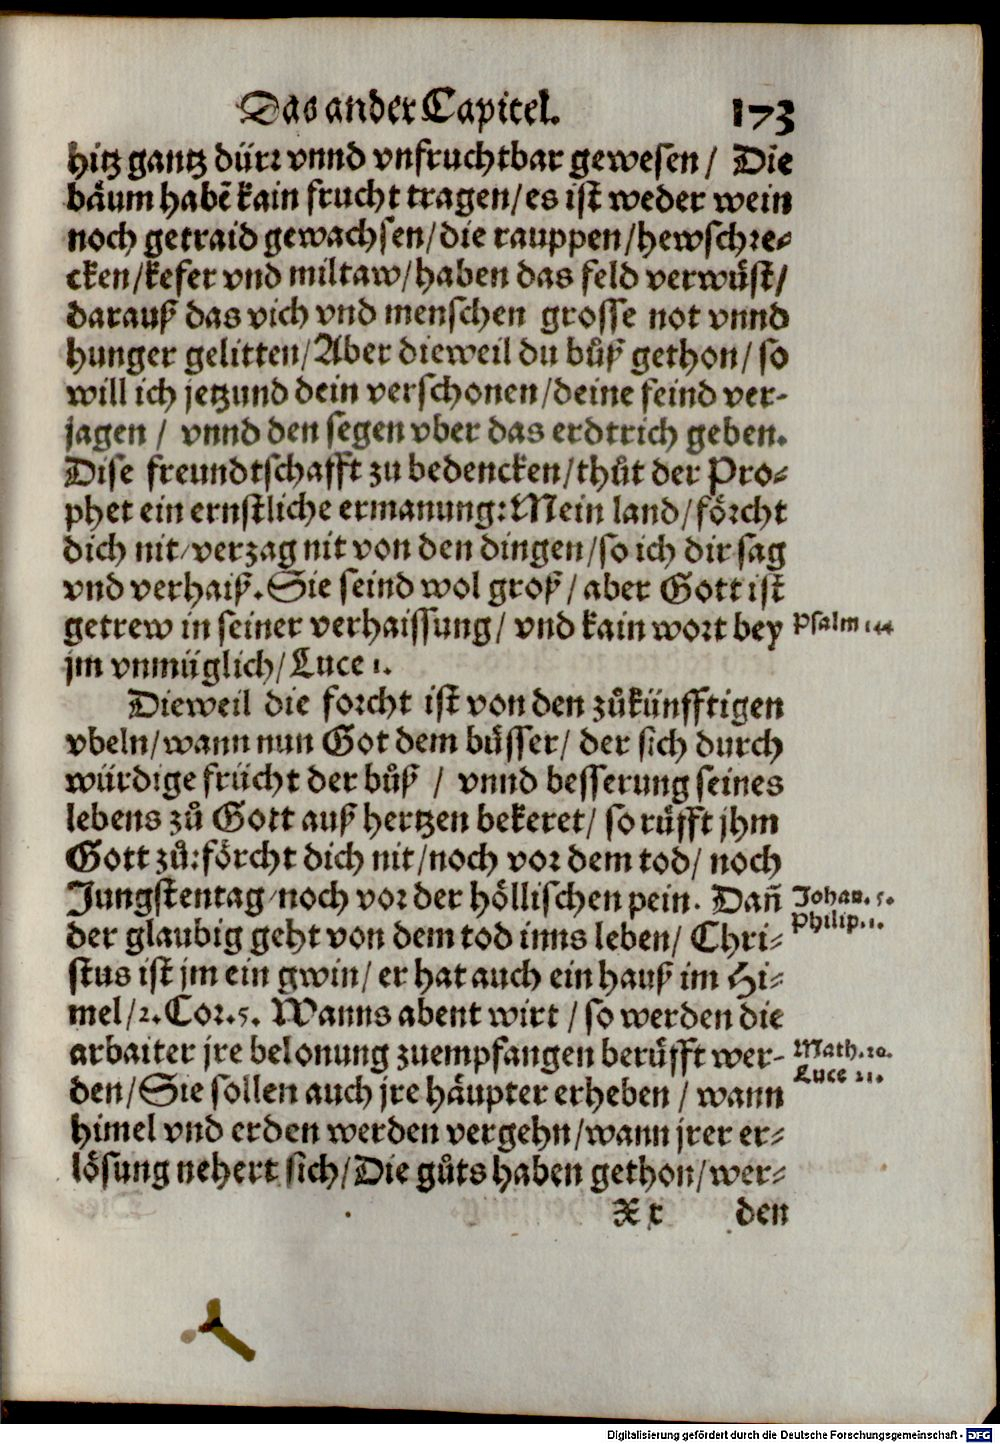 Das ander Capitel. 173
hitz gantz dürr vnnd vnfruchtbar gewesen / Die
bäum habẽ kain frucht tragen/es ist weder wein
noch getraid gewachsen/die rauppen/hewschre⸗
cken/kefer vnd miltaw/haben das feld verwüst/
darauß das vich vnd menschen grosse not vnnd
hunger gelitten/Aber dieweil du bůß gethon/so
will ich jetzund dein verschonen/deine feind ver-
jagen / vnnd den segen vber das erdtrich geben.
Dise freundtschafft zu bedencken/thůt der Pro⸗
phet ein ernstliche ermanung: Mein land/förcht
dich nit/verzag nit von den dingen/so ich dir sag
vnd verhaiß. Sie seind wol groß/aber Gott ist
getrew in seiner verhaissung/ vnd kain wort bey
Psalm 144
jm vnmüglich/Luce 1.
Dieweil die forcht ist von den zůkünfftigen
vbeln/wann nun Got dem büsser/ der sich durch
würdige frücht der bůß / vnnd besserung seines
lebens zů Gott auß hertzen bekeret/ so rüfft jhm
Gott zů: förcht dich nit/noch vor dem tod/ noch
Jungstentag/noch vor der höllischen pein. Dañ
Johan. 5.
der glaubig geht von dem tod inns leben/ Chri⸗
Philip. 1.
stus ist jm ein gwin/ er hat auch ein hauß im Hi⸗
mel/2. Cor. 5. Wanns abent wirt / so werden die
arbaiter jre belonung zuempfangen berüfft wer-
Math. 20.
den/Sie sollen auch jre häupter erheben / wann
Luce 21.
himel vnd erden werden vergehn/wann jrer er⸗
lösung nehert sich/Die gůts haben gethon/wer⸗
X x den
Digitalisierung gefördert durch die Deutsche Forschungsgemeinschaft - DFG